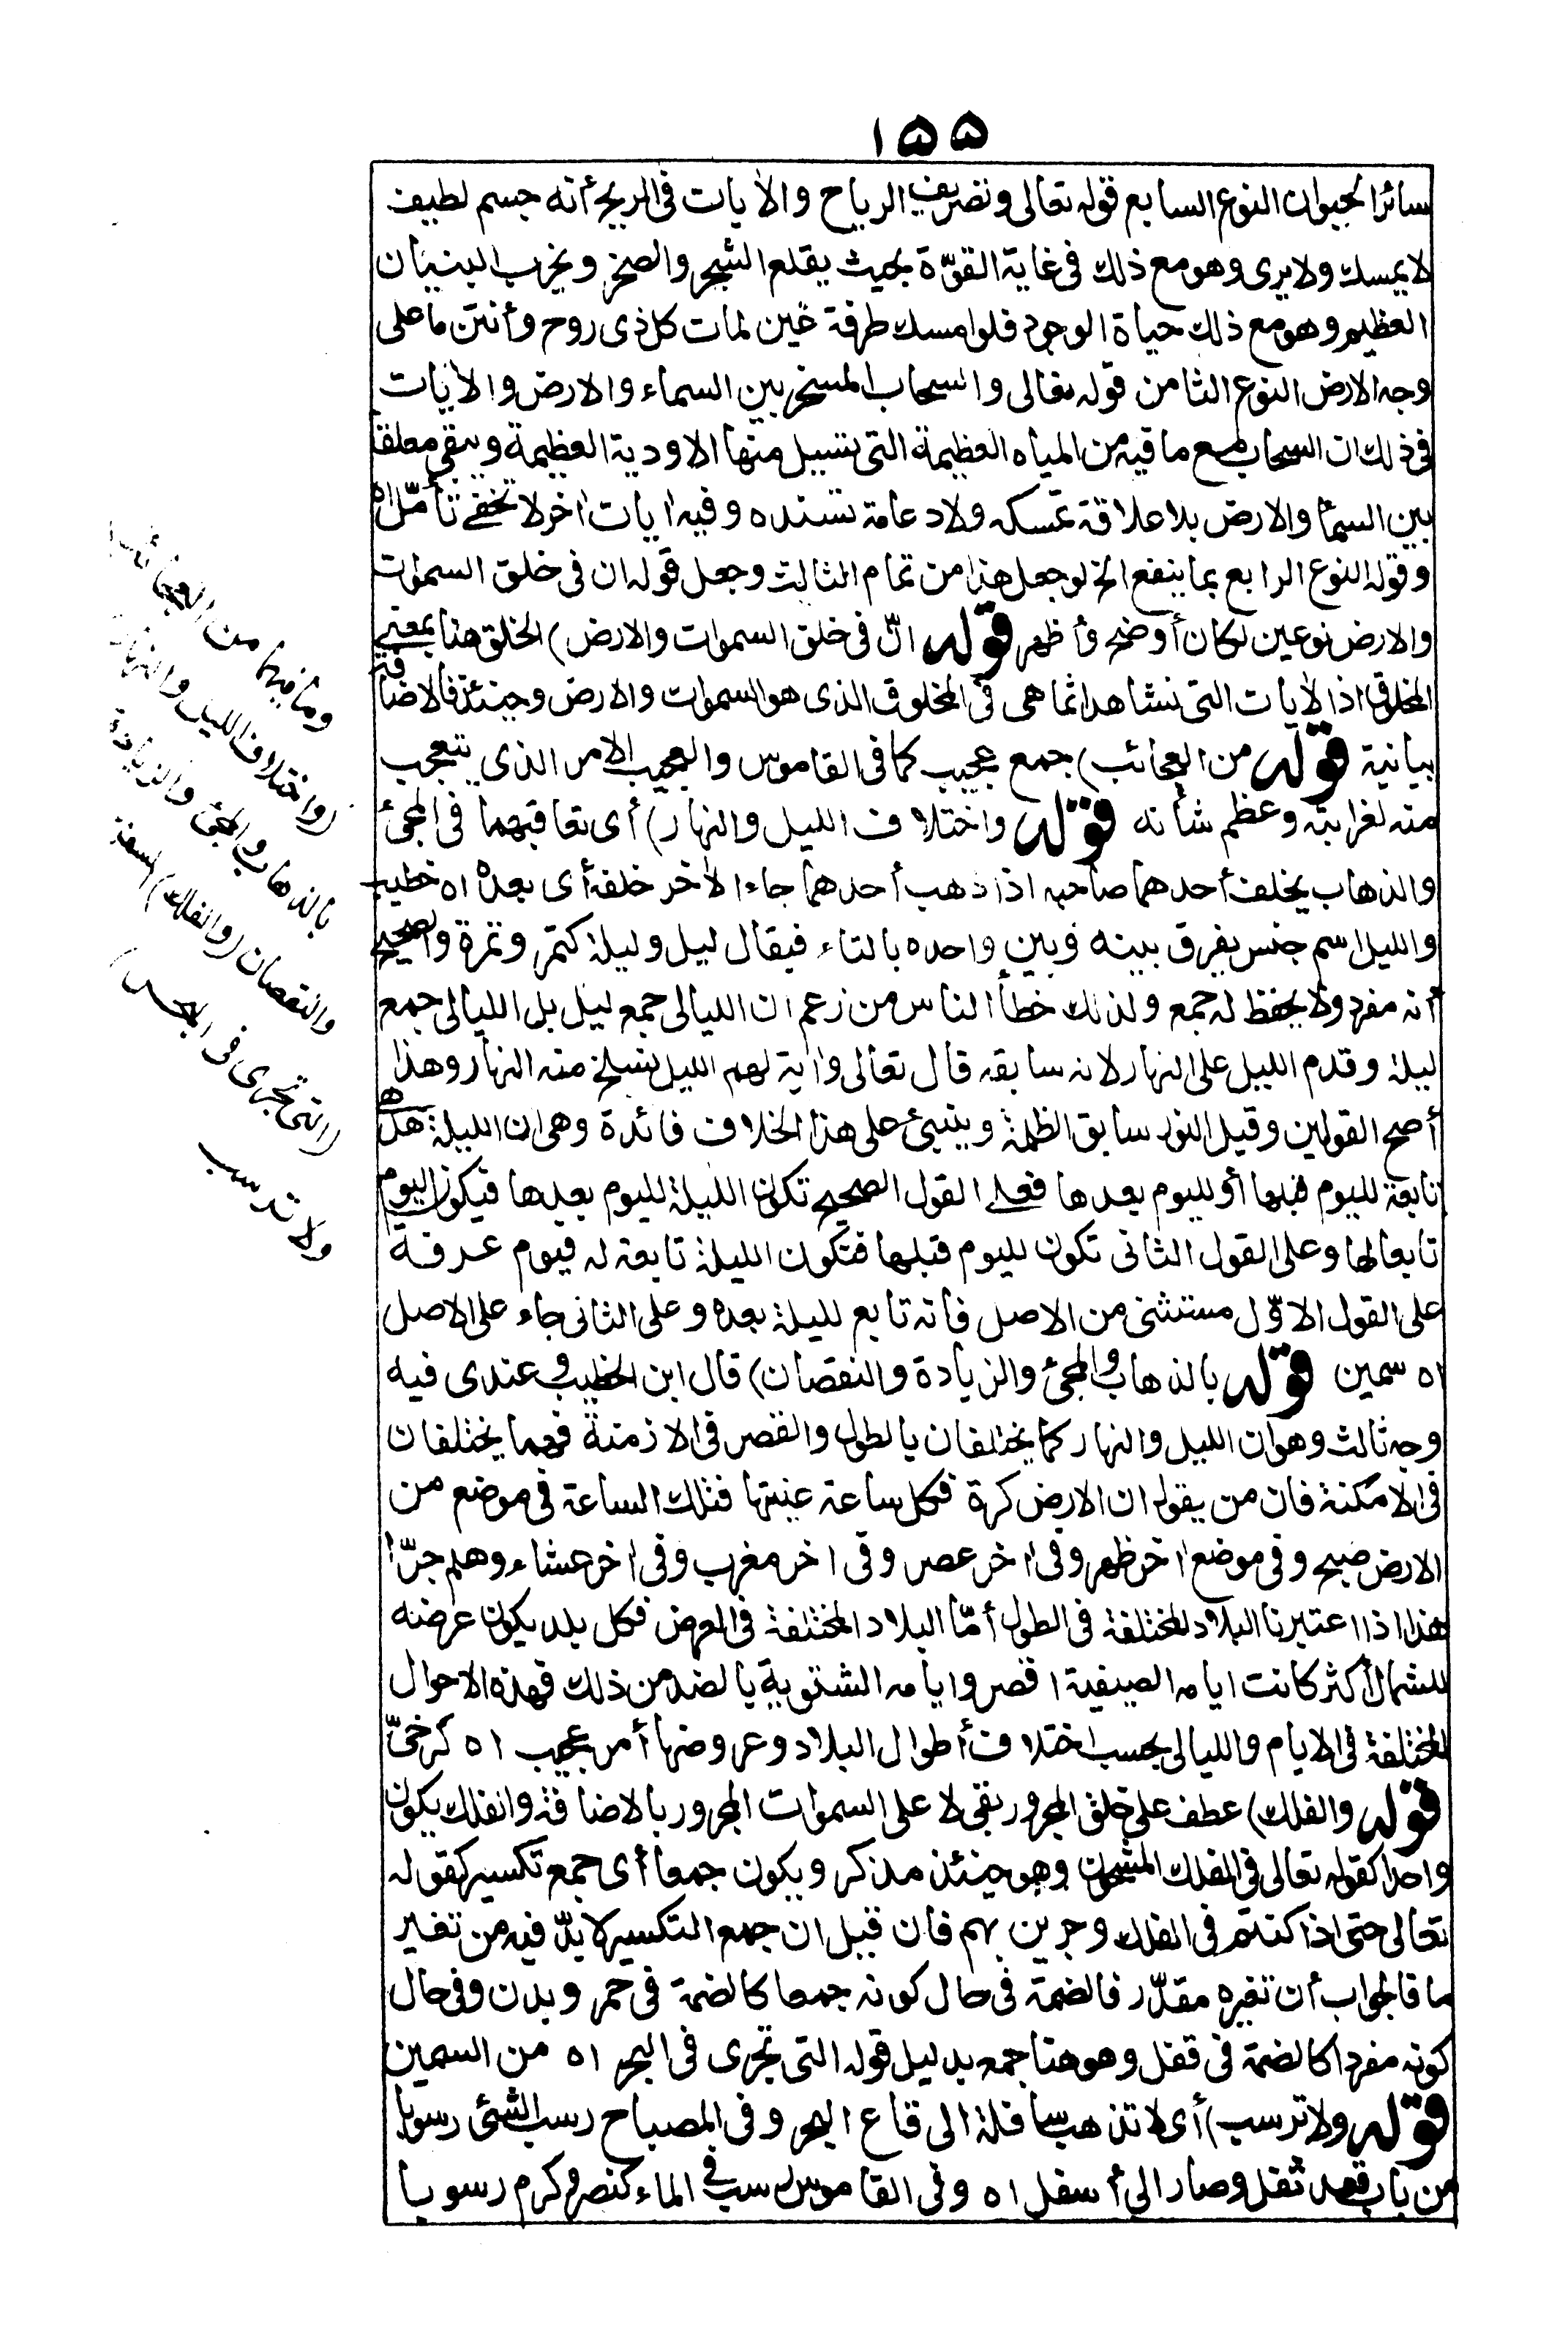 ١٥٥
سائر الحيوان النوع السابع قوله تعالى وتصريف الرياح والآيات فى الريح أنه جسم لطيف
لا يمسك ولا يرى وهو مع ذلك فى غاية القوّة بحيث يقلع الشجر والصخر ويخرب البنيان
العظيم وهو مع ذلك حياة الوجود فلو امسك طرفة عين لمات كل ذى روح وأنتن ما على
وجه الارض النوع الثامن قوله تعالى والسحاب المسخر بين السماء والارض والآيات
فى ذلك ان السحاب مع ما فيه من المياه العظيمة التى تسيل منها الاودية العظيمة ويبقى معلقا
بين السماء والارض بلا علاقة تمسكه ولا دعامة تسنده وفيه ايات اخر لا تخفى تأمّل اه
وقوله النوع الرابع بما ينفع الخ لو جعل هذا من تمام الثالث وجعل قوله ان فى خلق السموات
والارض نوعين لكان أوضح وأظهر قوله انّ فى خلق السموات والارض) الخلق هنا بمعنى
المخلوق اذ الآيات التى نشاهد انما هى فى المخلوق الذى هو السموات والارض وحينئذ فالاضافة
بيانية قوله من العجائب) جمع عجيب كما فى القاموس والعجيب الامر الذى يتعجب
منه لغرابته وعظم شأنه قوله واختلاف الليل والنهار) أى تعاقبهما فى المجئ
والذهاب يخلف أحدهما صاحبه اذا ذهب أحدهما جاء الآخر خلفه أى بعده اه خطيب
والليل اسم جنس يفرق بينه وبين واحده بالتاء فيقال ليل وليلة كتمر وتمرة والصحيح
أنه مفرد ولا يحفظ له جمع ولذلك خطأ الناس من زعم ان الليالى جمع ليل بل الليالى جمع
ليلة وقدم الليل على النهار لانه سابقه قال تعالى وآية لهم الليل نسلخ منه النهار وهذا
أصح القولين وقيل النور سابق الظلمة وينبنى على هذا الخلاف فائدة وهى ان الليلة هل هى
تابعة لليوم قبلها أو لليوم بعدها فعلى القول الصحيح تكون الليلة لليوم بعدها فيكون اليوم
تابعا لها وعلى القول الثانى تكون لليوم قبلها فتكون الليلة تابعة له فيوم عرفة
على القول الاوّل مستثنى من الاصل فانه تابع لليلة بعده وعلى الثانى جاء على الاصل
اه سمين قوله بالذهاب والمجئ والزيادة والنقصان) قال ابن الخطيب وعندى فيه
وجه ثالث وهو ان الليل والنهار كما يختلفان بالطول والقصر فى الازمنة فهما يختلفان
فى الامكنة فان من يقول ان الارض كرة فكل ساعة عينتها فتلك الساعة فى موضع من
الارض صبح وفى موضع آخر ظهر وفى آخر عصر وفى اخر مغرب وفى آخر عشاء وهلم جرّا
هذا اذا اعتبرنا البلاد المختلفة فى الطول أمّا البلاد المختلفة فى العرض فكل بلد يكون عرضه
للشمال أكثر كانت ايامه الصيفية اقصر وايامه الشتوية بالضد من ذلك فهذه الاحوال
المختلفة فى الايام والليالى بحسب اختلاف أطوال البلاد وعروضها أمر عجيب اه كرخىّ
قوله والفلك) عطف على خلق المجرور بفى لا على السموات المجرور بالاضافة والفلك يكون
واحدا كقوله تعالى فى الفلك المشحون وهو حينئذ مذكر ويكون جمعا أى جمع تكسير كقوله
تعالى حتى اذا كنتم فى الفلك وجرين بهم فان قيل ان جمع التكسير لا بدّ فيه من تغير
ما فالجواب أن تغيره مقدّر فالضمة فى حال كونه جمعا كالضمة فى حمر وبدن وفى حال
كونه مفردا كالضمة فى قفل وهو هنا جمع بدليل قوله التى تجرى فى البحر اه من السمين
قوله ولا ترسب) أى لا تذهب سافلة الى قاع البحر وفى المصباح رسب الشئ رسوبا
من باب قعد ثقل وصار الى أسفل اه وفى القاموس رسب فى الماء كنصر وكرم رسوبا
وما فيهما من العجائب
(واختلاف الليل والنهار)
بالذهاب والمجئ والزيادة
والنقصان (والفلك) السفن
(التى تجرى فى البحر)
ولا ترسب